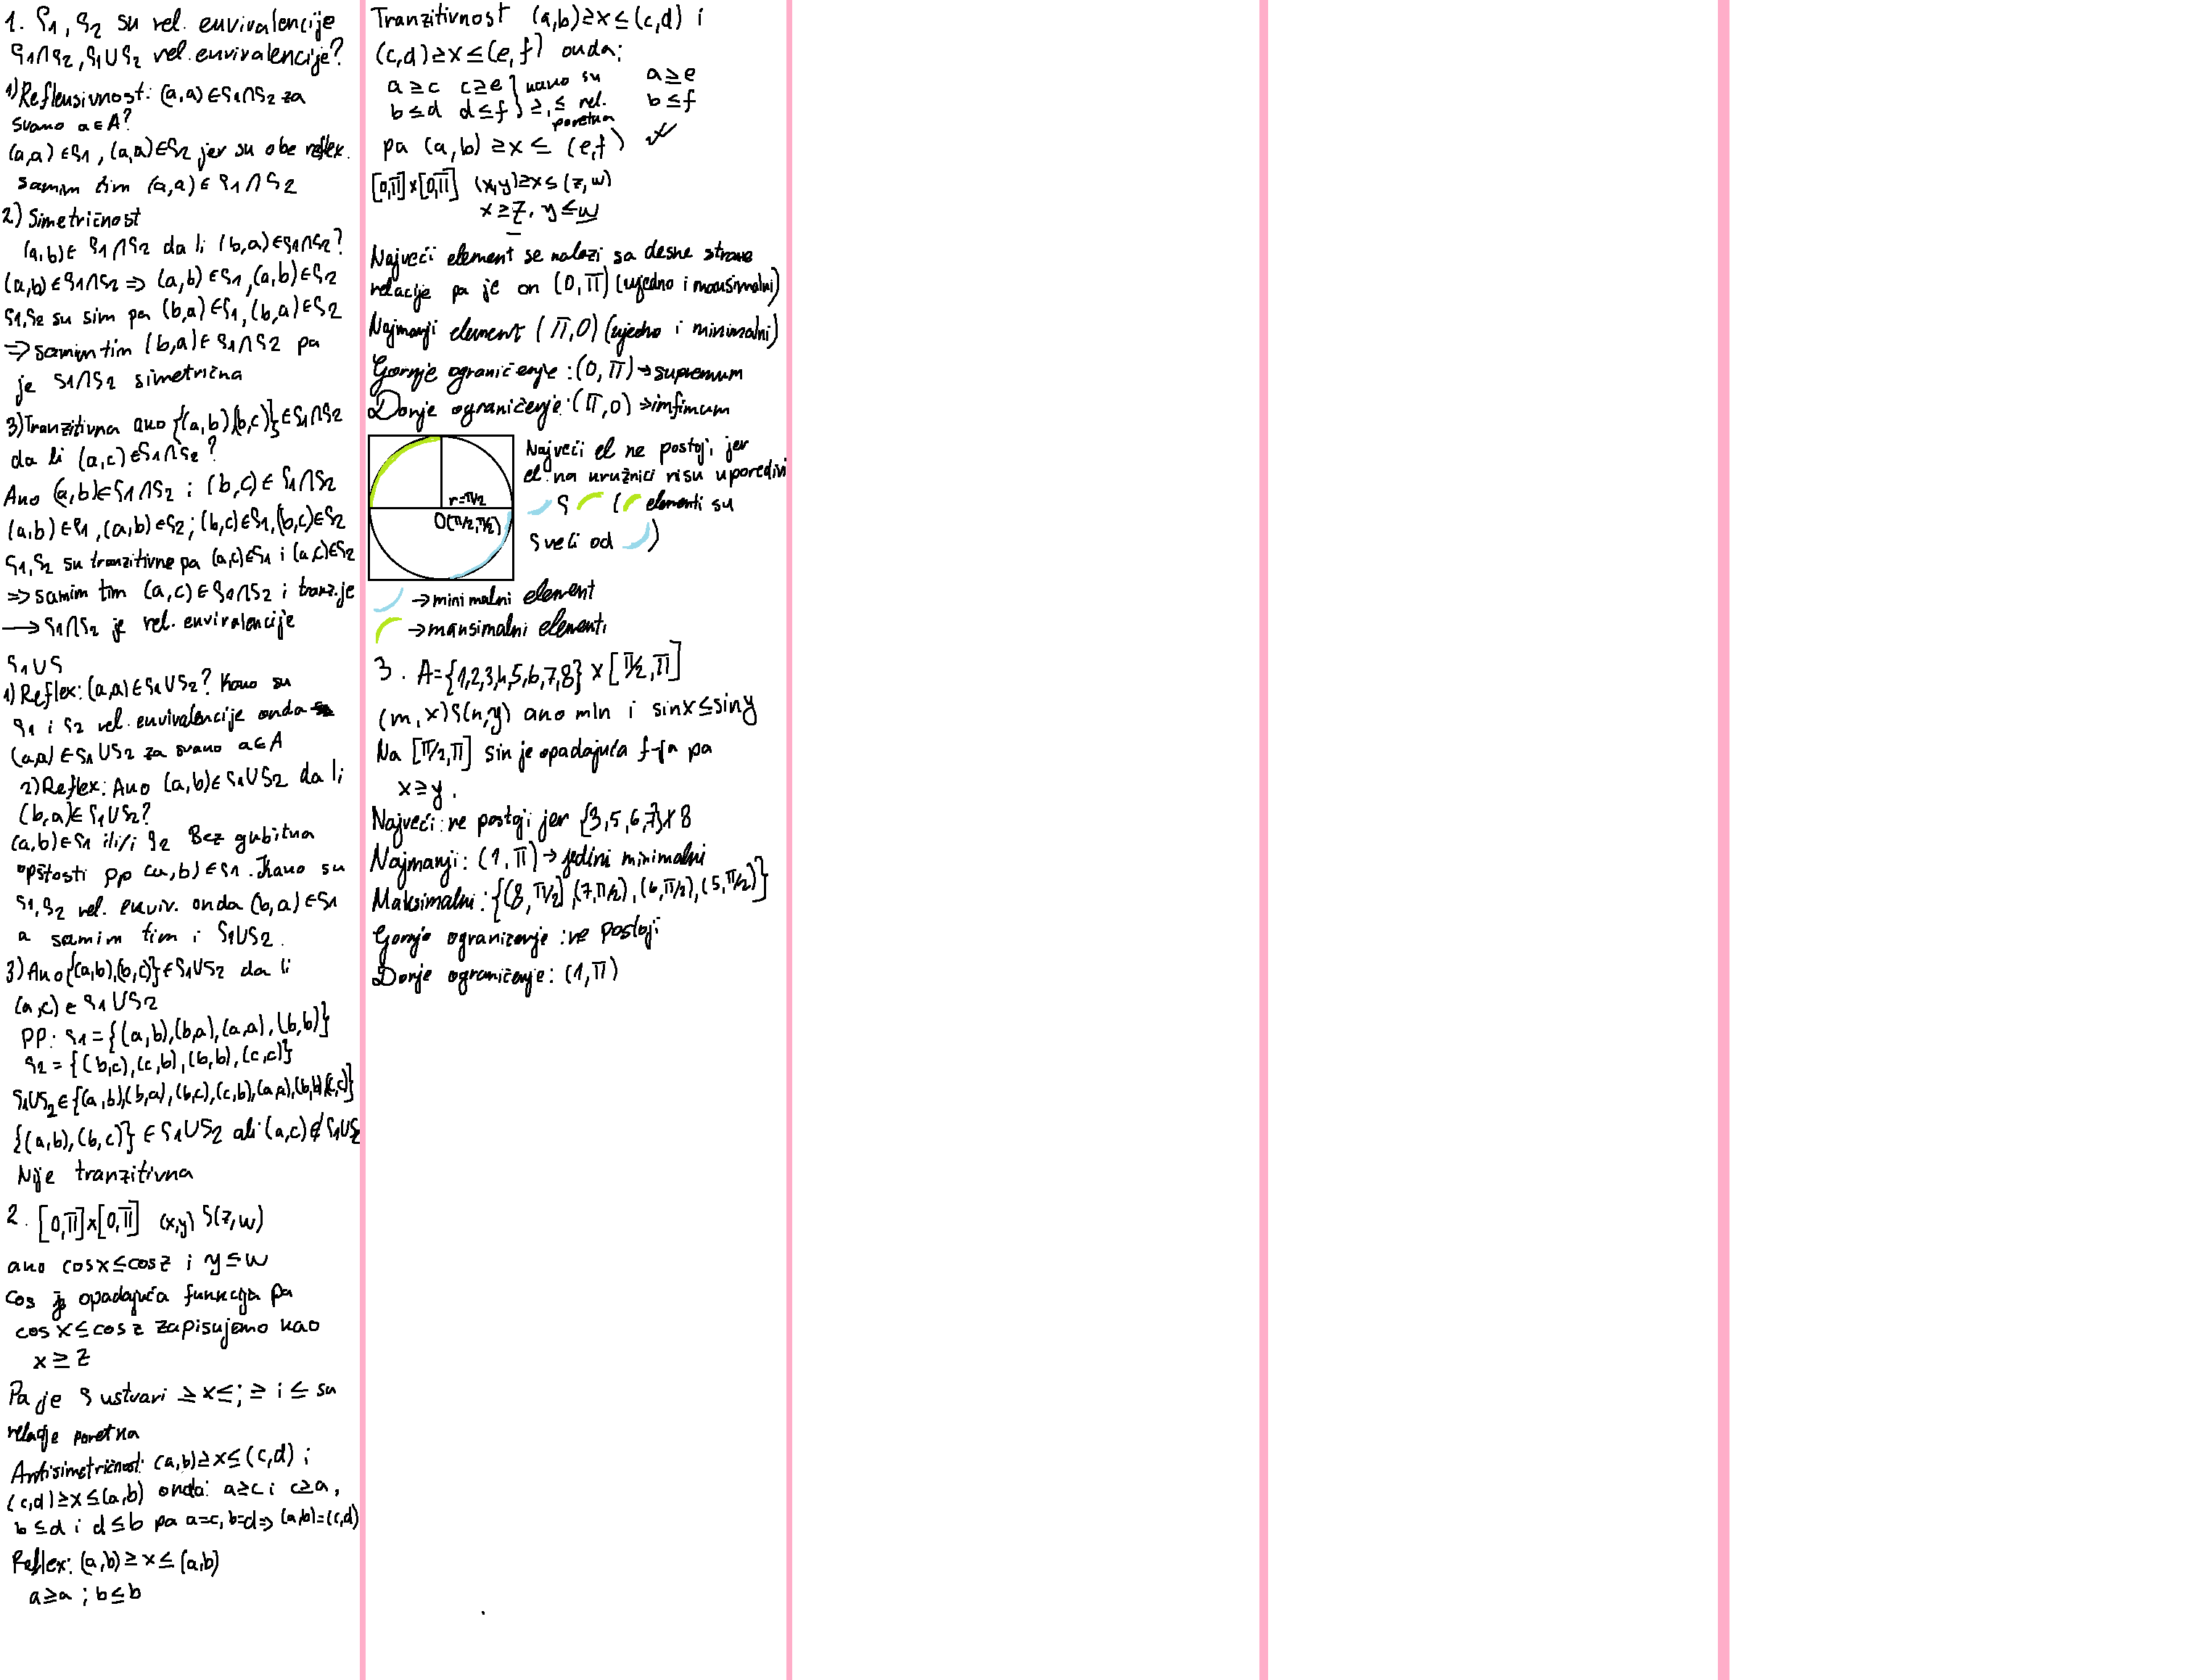 1. ρ1, ρ2 su rel. ekvivalencije
ρ1∩ρ2, ρ1∪ρ2 rel. ekvivalencije?
1) Refleksivnost: (a,a)∈ρ1∩ρ2 za
svako a∈A?
(a,a)∈ρ1, (a,a)∈ρ2 jer su obe reflex.
samim tim (a,a)∈ρ1∩ρ2
2) Simetričnost
(a,b)∈ρ1∩ρ2 da li (b,a)∈ρ1∩ρ2?
(a,b)∈ρ1∩ρ2 => (a,b)∈ρ1, (a,b)∈ρ2
ρ1,ρ2 su sim pa (b,a)∈ρ1, (b,a)∈ρ2
=> samim tim (b,a)∈ρ1∩ρ2 pa
je ρ1∩ρ2 simetrična
3) Tranzitivna ako {(a,b)(b,c)}∈ρ1∩ρ2
da li (a,c)∈ρ1∩ρ2?
Ako (a,b)∈ρ1∩ρ2 i (b,c)∈ρ1∩ρ2
(a,b)∈ρ1, (a,b)∈ρ2; (b,c)∈ρ1, (b,c)∈ρ2
ρ1,ρ2 su tranzitivne pa (a,c)∈ρ1 i (a,c)∈ρ2
=> samim tim (a,c)∈ρ1∩ρ2 i tranz.je
→ ρ1∩ρ2 je rel. ekvivalencije
ρ1∪ρ
1) Reflex: (a,a)∈ρ1∪ρ2? Kako su
ρ1 i ρ2 rel. ekvivalencije onda
(a,a)∈ρ1∪ρ2 za svako a∈A
2) Reflex: Ako (a,b)∈ρ1∪ρ2 da li
(b,a)∈ρ1∪ρ2?
(a,b)∈ρ1 ili/i ρ2 Bez gubitka
opštosti pp (a,b)∈ρ1. Kako su
ρ1,ρ2 rel. ekviv. onda (b,a)∈ρ1
a samim tim i ρ1∪ρ2.
3) Ako {(a,b),(b,c)}∈ρ1∪ρ2 da li
(a,c)∈ρ1∪ρ2
PP: ρ1={(a,b),(b,a),(a,a),(b,b)}
ρ2={(b,c),(c,b),(b,b),(c,c)}
ρ1∪ρ2∈{(a,b),(b,a),(b,c),(c,b),(a,a),(b,b)(c,c)}
{(a,b),(b,c)}∈ρ1∪ρ2 ali (a,c)∉ρ1∪ρ2
Nije tranzitivna
2. [0,π]×[0,π] (x,y)ρ(z,w)
ako cosx≤cosz i y≤w
cos je opadajuća funkcija pa
cos x≤cos z zapisujemo kao
x≥z
Pa je ρ ustvari ≥×≤; ≥ i ≤ su
relacije poretka
Antisimetričnost: (a,b)≥×≤(c,d) i
(c,d)≥×≤(a,b) onda: a≥c i c≥a,
b≤d i d≤b pa a=c, b=d => (a,b)=(c,d)
Reflex: (a,b)≥×≤(a,b)
a≥a ; b≤b
Tranzitivnost (a,b)≥×≤(c,d) i
(c,d)≥×≤(e,f) onda:
a≥c c≥e } kako su a≥e
b≤d d≤f } ≥,≤ rel. b≤f
poretka
pa (a,b)≥×≤(e,f) ✓
[0,π]×[0,π] (x,y)≥×≤(z,w)
x≥z, y≤w
Najveći element se nalazi sa desne strane
relacije pa je on (0,π) (ujedno i maksimalni)
Najmanji element (π,0) (ujedno i minimalni)
Gornje ograničenje: (0,π) → supremum
Donje ograničenje: (π,0) → imfimum
Najveći el ne postoji jer
el. na kružnici nisu uporedivi
ρ ( elementi su
ρ veći od )
r=π/2
O(π/2,π/2)
→ minimalni element
→ maksimalni elementi
3. A={1,2,3,4,5,6,7,8}×[π/2,π]
(m,x)ρ(n,y) ako m|n i sinx≤siny
Na [π/2,π] sin je opadajuća f-ja pa
x≥y.
Najveći: ne postoji jer {3,5,6,7}∤8
Najmanji: (1,π) → jedini minimalni
Maksimalni: {(8,π/2),(7,π/2),(6,π/2),(5,π/2)}
Gornje ograničenje: ne postoji
Donje ograničenje: (1,π)